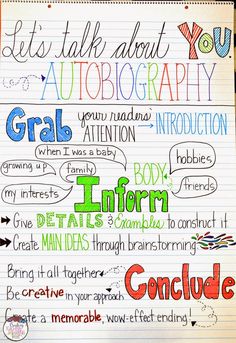 Let's talk about YOU.
AUTOBIOGRAPHY
Grab your readers' ATTENTION → INTRODUCTION
when I was a baby
growing up
family
my interests
BODY
hobbies
friends
Inform
→ Give DETAILS & Examples to construct it
→ Create MAIN IDEAS through brainstorming
Bring it all together
Be creative in your approach
Conclude
Create a memorable, wow-effect ending!